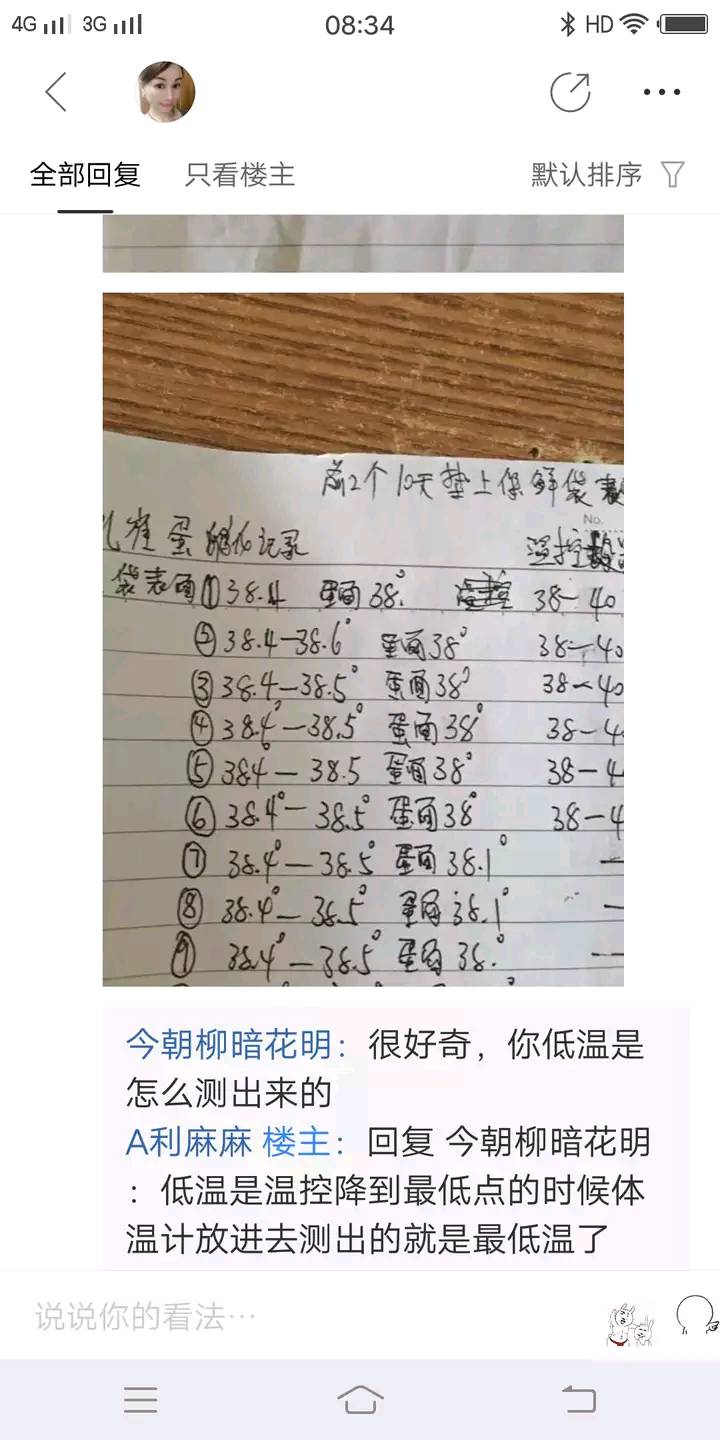 4G 3G 08:34 HD
全部回复 只看楼主 默认排序
前2个10天垫上保鲜袋表
孔雀蛋孵化记录 No.
温控数
袋表面①38.4 蛋面38° 温控 38-40
②38.4-38.6° 蛋面38° 38-40
③38.4-38.5° 蛋面38° 38-40
④38.4°-38.5° 蛋面38° 38-4
⑤38.4-38.5 蛋面38° 38-4
⑥38.4°-38.5° 蛋面38° 38-4
⑦38.4°-38.5° 蛋面38.1° -
⑧38.4°-38.5° 蛋面38.1° -
⑨38.4°-38.5° 蛋面38.° --
今朝柳暗花明：很好奇，你低温是
怎么测出来的
A利麻麻 楼主：回复 今朝柳暗花明
：低温是温控降到最低点的时候体
温计放进去测出的就是最低温了
说说你的看法…